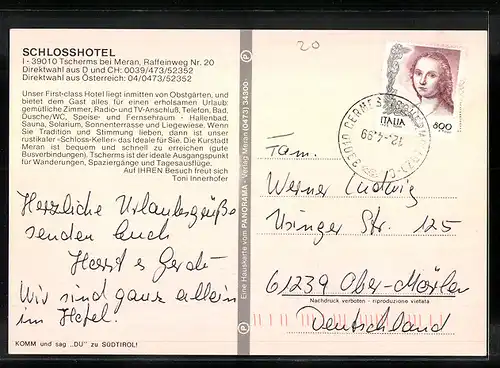 SCHLOSSHOTEL
I - 39010 Tscherms bei Meran, Raffeinweg Nr. 20
Direktwahl aus D und CH: 0039/473/52352
Direktwahl aus Österreich: 04/0473/52352
Unser First-class Hotel liegt inmitten von Obstgärten, und
bietet dem Gast alles für einen erholsamen Urlaub:
gemütliche Zimmer, Radio- und TV-Anschluß, Telefon, Bad,
Dusche/WC, Speise- und Fernsehraum - Hallenbad,
Sauna, Solarium, Sonnenterrasse und Liegewiese. Wenn
Sie Tradition und Stimmung lieben, dann ist unser
rustikaler «Schloss-Keller» das ideale für Sie. Die Kurstadt
Meran ist bequem und schnell zu erreichen (gute
Busverbindungen). Tscherms ist der ideale Ausgangspunkt
für Wanderungen, Spaziergänge und Tagesausflüge.
Auf IHREN Besuch freut sich
Toni Innerhofer
Herzliche Urlaubsgrüße
senden Euch
Horst u Gerda
Wir sind ganz allein
im Hotel.
KOMM und sag „DU" zu SÜDTIROL!
P
Eine Hauskarte vom PANORAMA - Verlag Meran (0473) 34300
P
20
ITALIA
800
39010 CERMES
12-4-99
Fam.
Werner Ludwig
Usinger Str. 125
61239 Ober-Mörlen
Nachdruck verboten - riproduzione vietata
Deutschland